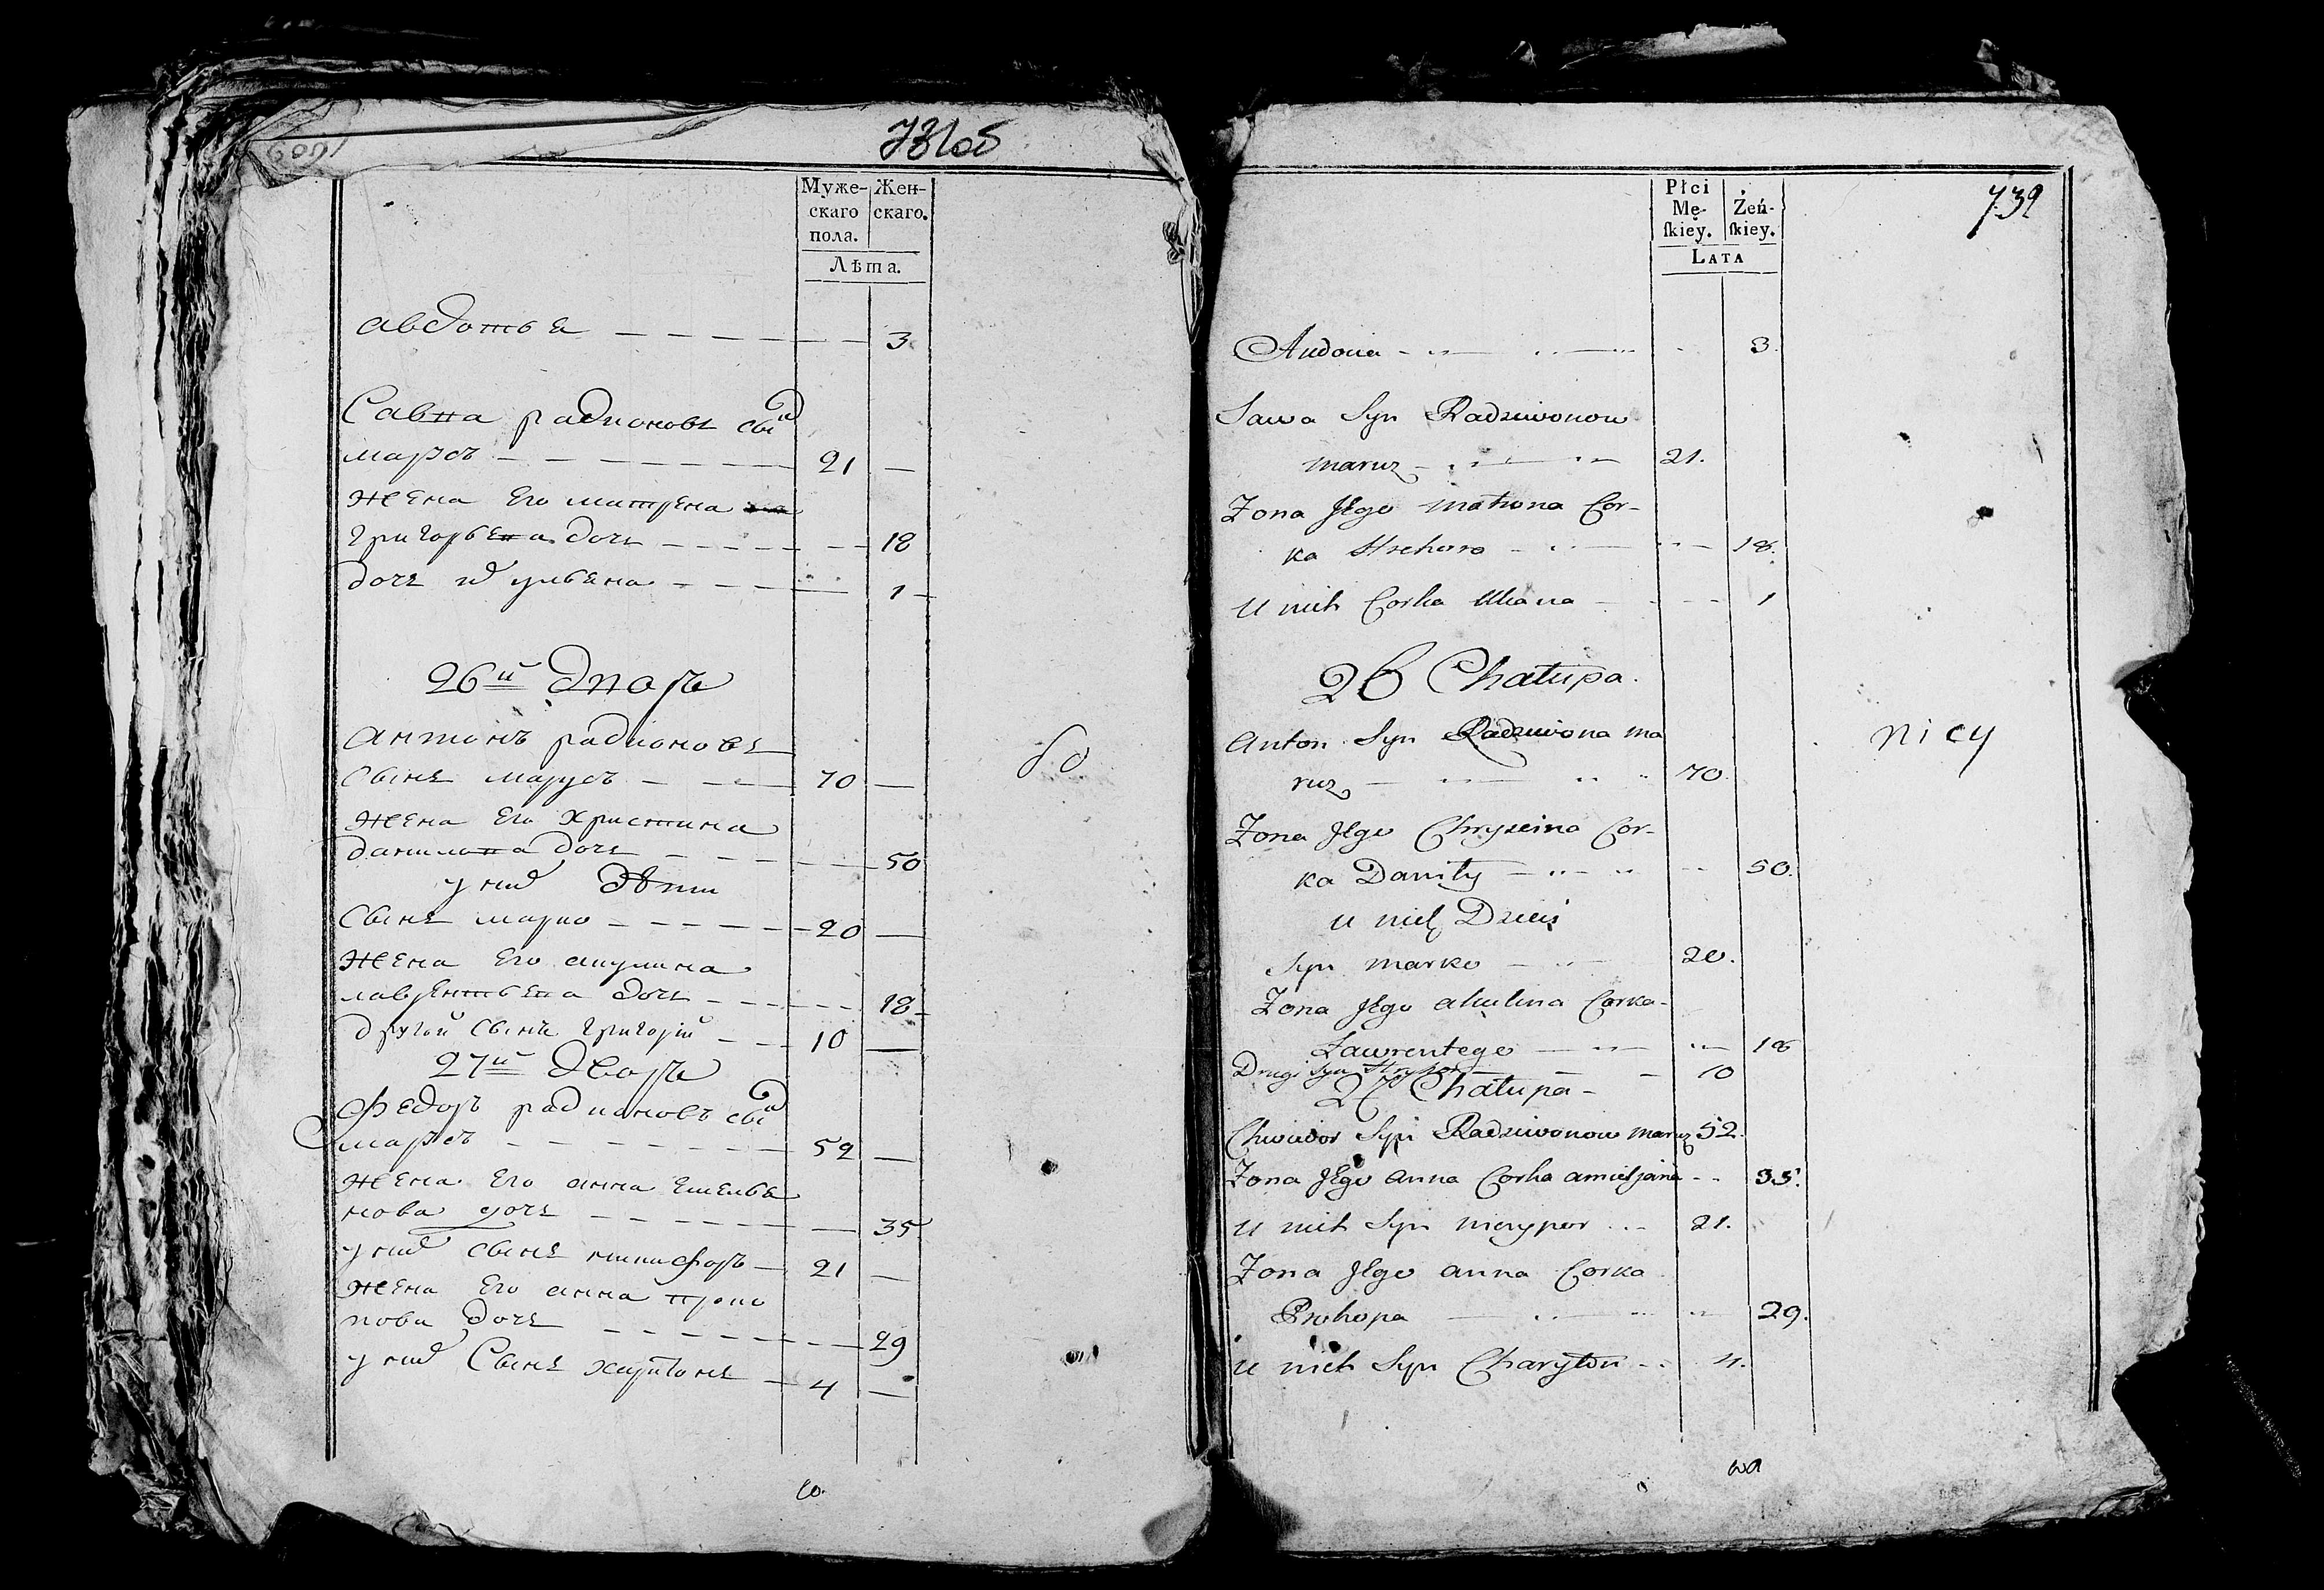 731об
Муже-
скаго
пола.
Жен-
скаго.
Лѣта.
авдотья 3
Савпа радионовъ сын
марусъ 21
жена его матрена
григорьепа дочь 18
дочь их ульяна 1
26й дпоръ
антонъ радионовъ
сынъ марусъ 70
жена его христина
данилопа дочь 50
у них дѣти
сынъ марко 20
жена его акулина
лаврентьепа дочь 18
другой сынъ григорій 10
27й дворъ
Федоръ радионовъ сын
марусъ 52
жена его анна емелья
нова дочь 35
у них сынъ никифоръ 21
жена его анна проко
пова дочь 29
у них Сынъ харитонъ 4
732
Płci
Mę-
ſkiey.
Żeń-
ſkiey.
Lata
Audocia 3.
Sawa Syn Radziwonow
maruz 21.
Zona Jego matrona Cor-
ka Hrehora 18.
U nich Corka Uliana 1
26 Chałupa.
Anton Syn Radziwona ma
ruz 70.
Zona Jego Chryscina Cor-
ka Daniły 50.
u nich Dzieci
Syn marko 20.
Zona Jego akulina Corka
Ławrentego 18
Drugi Syn Hryhor 10
27 Chałupa
Chwiedor Syn Radziwonow maruz 52.
Zona Jego anna Corka amieljana 35.
U nich Syn nicypor 21.
Zona Jego anna Corka
Prokopa 29.
U nich Syn Charyton 4.